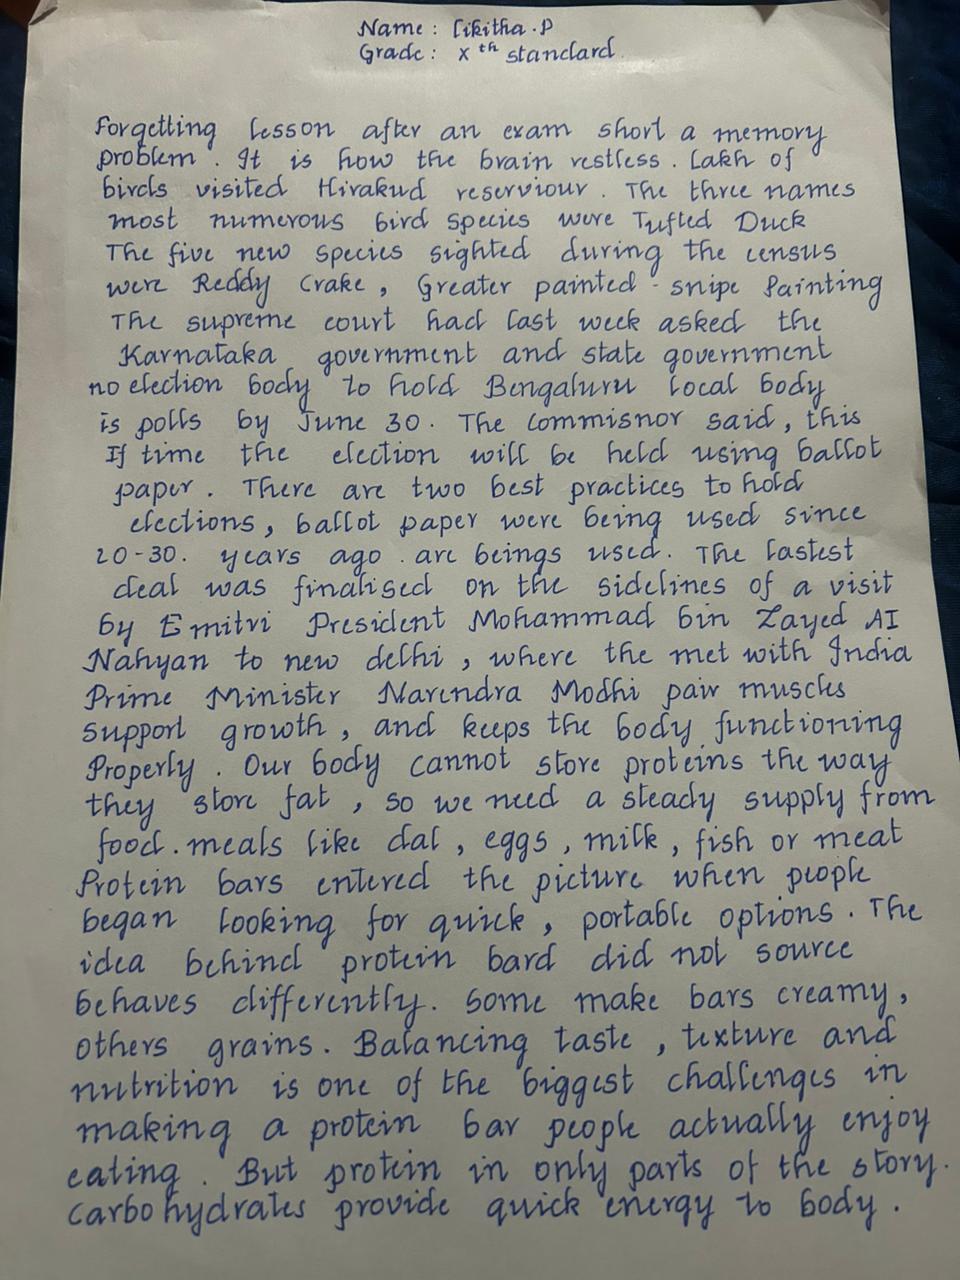 Name : Likitha . P
Grade : Xth standard
Forgetting lesson after an exam short a memory
problem . It is how the brain restless . Lakh of
birds visited Hirakud reserviour . The three names
most numerous bird species were Tufted Duck
The five new species sighted during the census
were Reddy Crake , Greater painted - snipe Painting
The supreme court had last week asked the
Karnataka government and state government
no election body to hold Bengaluru local body
is polls by June 30 . The Commisnor said , this
If time the election will be held using ballot
paper . There are two best practices to hold
elections , ballot paper were being used since
20-30 . years ago . are beings used . The lastest
deal was finalised on the sidelines of a visit
by Emitri President Mohammad bin Zayed AI
Nahyan to new delhi , where the met with India
Prime Minister Narendra Modhi pair muscles
support growth , and keeps the body functioning
Properly . Our body cannot store proteins the way
they store fat , so we need a steady supply from
food . meals like dal , eggs , milk , fish or meat
Protein bars entered the picture when people
began looking for quick , portable options . The
idea behind protein bard did not source
behaves differently . Some make bars creamy ,
others grains . Balancing taste , texture and
nutrition is one of the biggest challenges in
making a protein bar people actually enjoy
eating . But protein in only parts of the story .
Carbohydrates provide quick energy to body .